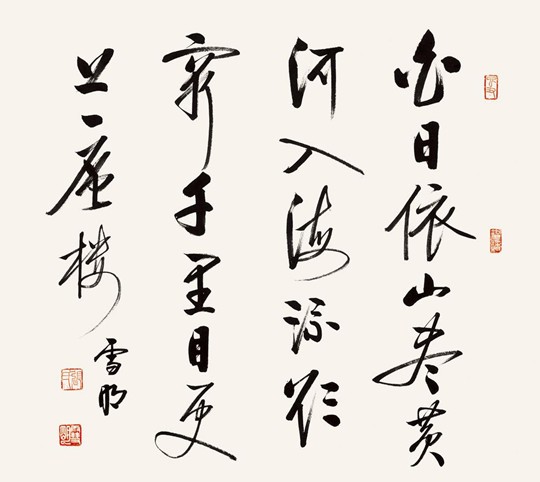 白日依山尽黄
河入海流欲
穷千里目更
上一层楼
雪明